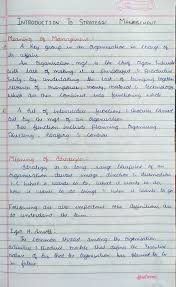 INTRODUCTION TO STRATEGIC MANAGEMENT
Meaning of Management:
A Key group in an Organisation in charge of
its affairs.
An Organisation mgt is the chief organ
with task of making it a purposeful & productive
by undertaking the task of bringing together
resources of manpower, money, material & Technology
which are then combined into functioning whole.
A set of interrelated functions & process carried
out by the mgt of an organisation.
These functions include Planning, Organising,
Directing, Staffing & Control.
Meaning of Strategic:
Strategy is a long range blueprint of an
organisation's desired image direction & destination
i.e. what it wants to be, what it wants to do,
how it wants to do things & where it wants to go.
Following are also important the definitions
to understand the term.
Igor H. Ansoff:
The common thread among the organisation's
activities & product markets that defines the
nature of business that the organisation has planned to
in future.